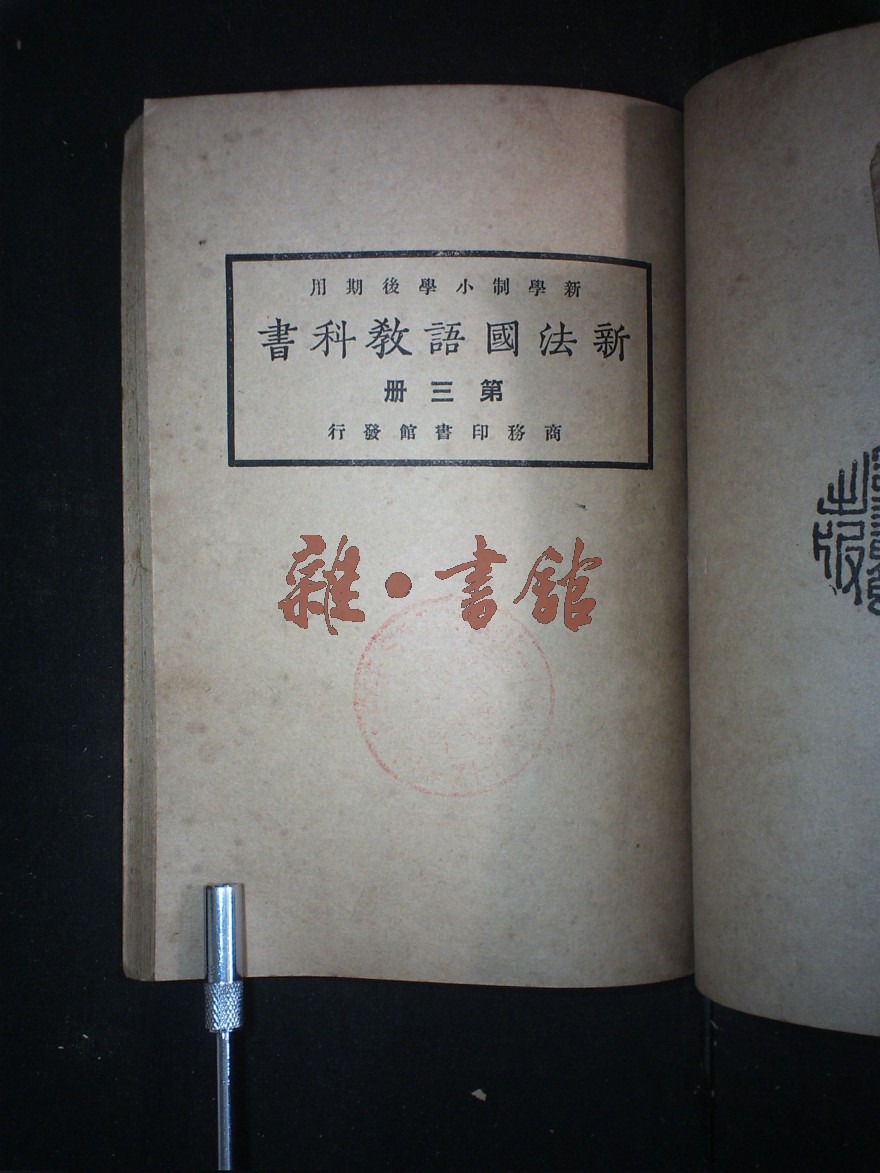 新學制小學後期用
新法國語教科書
第三册
商務印書館發行
雜·書館
出版